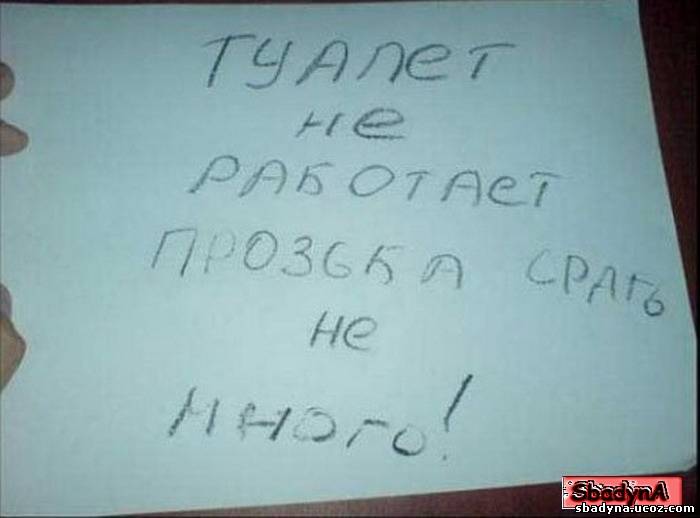 ТУАЛЕТ
не
РАБОТАЕТ
ПРОЗЬКА СРАТЬ
не
много!
SbadynA
sbadyna.ucoz.com